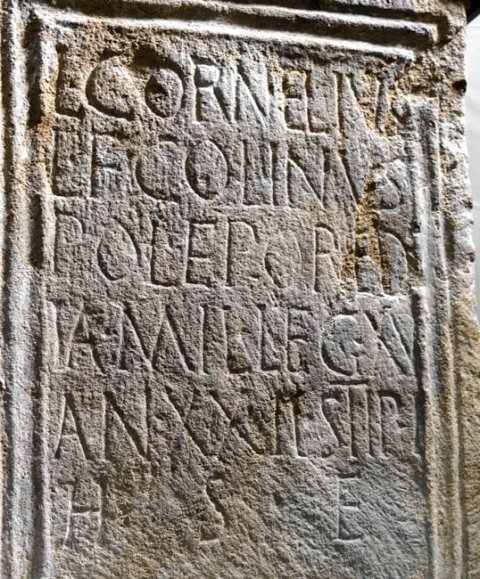 L CORNELIVS
L F COLINVS
POL EPORED
IA·MIL·LEG·XV
AN·XXII STIP I
H · S · E